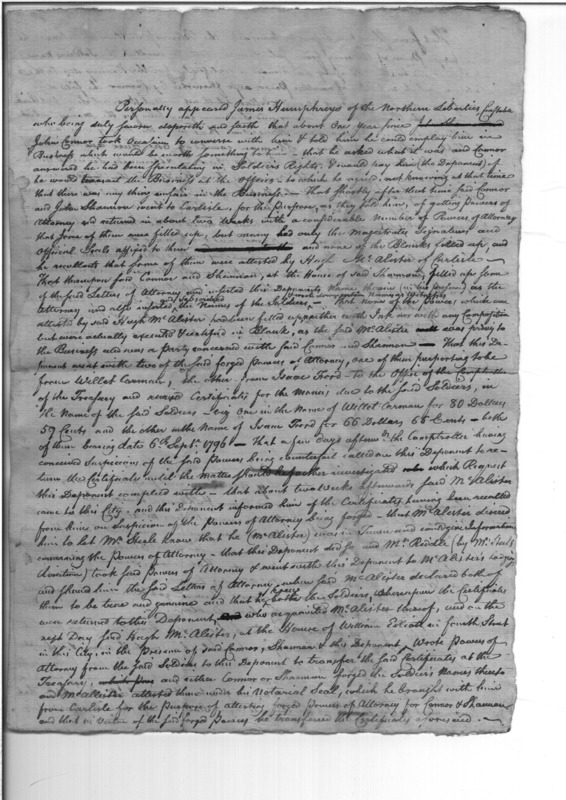 Personally appeared James Humphreys of the Northern Liberties Constable
who being duly sworn deposeth and saith that about One Year since
John Connor took Occasion to converse with him & told him he could employ him in
Business which would be worth something to him - that he asked what it was and Connor
answered he had been speculating in Soldiers Rights, & would pay him (the Deponent) if
he would transact the Business at the Offices - to which he agreed, not knowing at that time
that there was any thing unfair in the Business - That shortly after that time said Connor
and John Shannon went to Carlisle, for the Purpose, as they told him, of getting Powers of
Attorney and returned in about two Weeks with a considerable Number of Powers of Attorney
that some of them were filled up, but many had only the Magistrates Signatures and
Official Seals affixed to them and none of the Blanks filled up, and
he recollects that some of them were attested by Hugh McAlister of Carlisle -
That thereupon said Connor and Shannon, at the House of said Shannon, filled up some
of the said Letters of Attorney and inserted this Deponents Name therein (in his presence) as the
Attorney and also inserted the Names of the Soldiers, - That None of the Powers which were
attested by said Hugh McAlister had been filled up either with Ink nor with any Composition
but were actually executed & certified in Blank, as the said McAlister was privy to
the Business and was a Party concerned with said Connor and Shannon - That this De-
ponent went with two of the said forged Powers of Attorney, one of them purporting to be
from Willet Carman, the other from Isaac Foord - to the Office of the Comptroller
of the Treasury and received Certificates for the Monies due to the said Soldiers, in
the Name of the said Soldiers - being one in the Name of Willet Carman for 80 Dollars
59 Cents and the other in the Name of Isaac Foord for 66 Dollars 66 Cents - both
of them bearing date 6th Septr. 1796 - That a few days afterwds. the Comptroller having
conceived Suspicions of the said Powers being counterfeit called on this Deponent to re-
turn the Certificates until the matter should be further investigated which Request
this Deponent complied with - that about two weeks afterwards said McAlister
came to this City - and this Deponent informed him of the Certificates having been recalled
from him on Suspicion of the Powers of Attorney being forged - that McAlister desired
him to let Mr. Steele know that he (McAlister) was in Town and could give Information
concerning the Powers of Attorney - that this Deponent did so and Mr. (by Mr. Steele's
direction) took said Powers of Attorney & went with this Deponent to McAlister's lodging
and shewed him the said Letters of Attorney, when said McAlister declared both of
them to be true and genuine and that he knew both the Soldiers, Whereupon the Certificates
were returned to this Deponent, who acquainted McAlister thereof, and on the
next Day said Hugh McAlister, at the House of William Elliott in fourth Street
in this City, in the Presence of said Connor, Shannon & this Deponent, Wrote Powers of
Attorney from the said Soldiers to this Deponent to transfer the said Certificates at the
Treasury, and either Connor or Shannon forged the Soldiers Names thereto
and McAlister attested them under his Notarial Seal, which he brought with him
from Carlisle for the Purpose of attesting forged Powers of Attorney for Connor & Shannon
and that in virtue of the said forged Powers he transferred the Certificates aforesaid. -